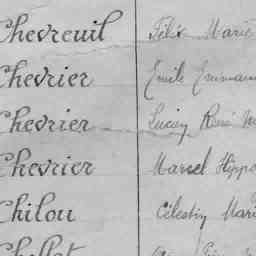 Chevreuil Félix Marie
Chevrier Emile Emman
Chevrier Lucien René
Chevrier Marcel Hippo
Chilou Célestin Mari
Chollet